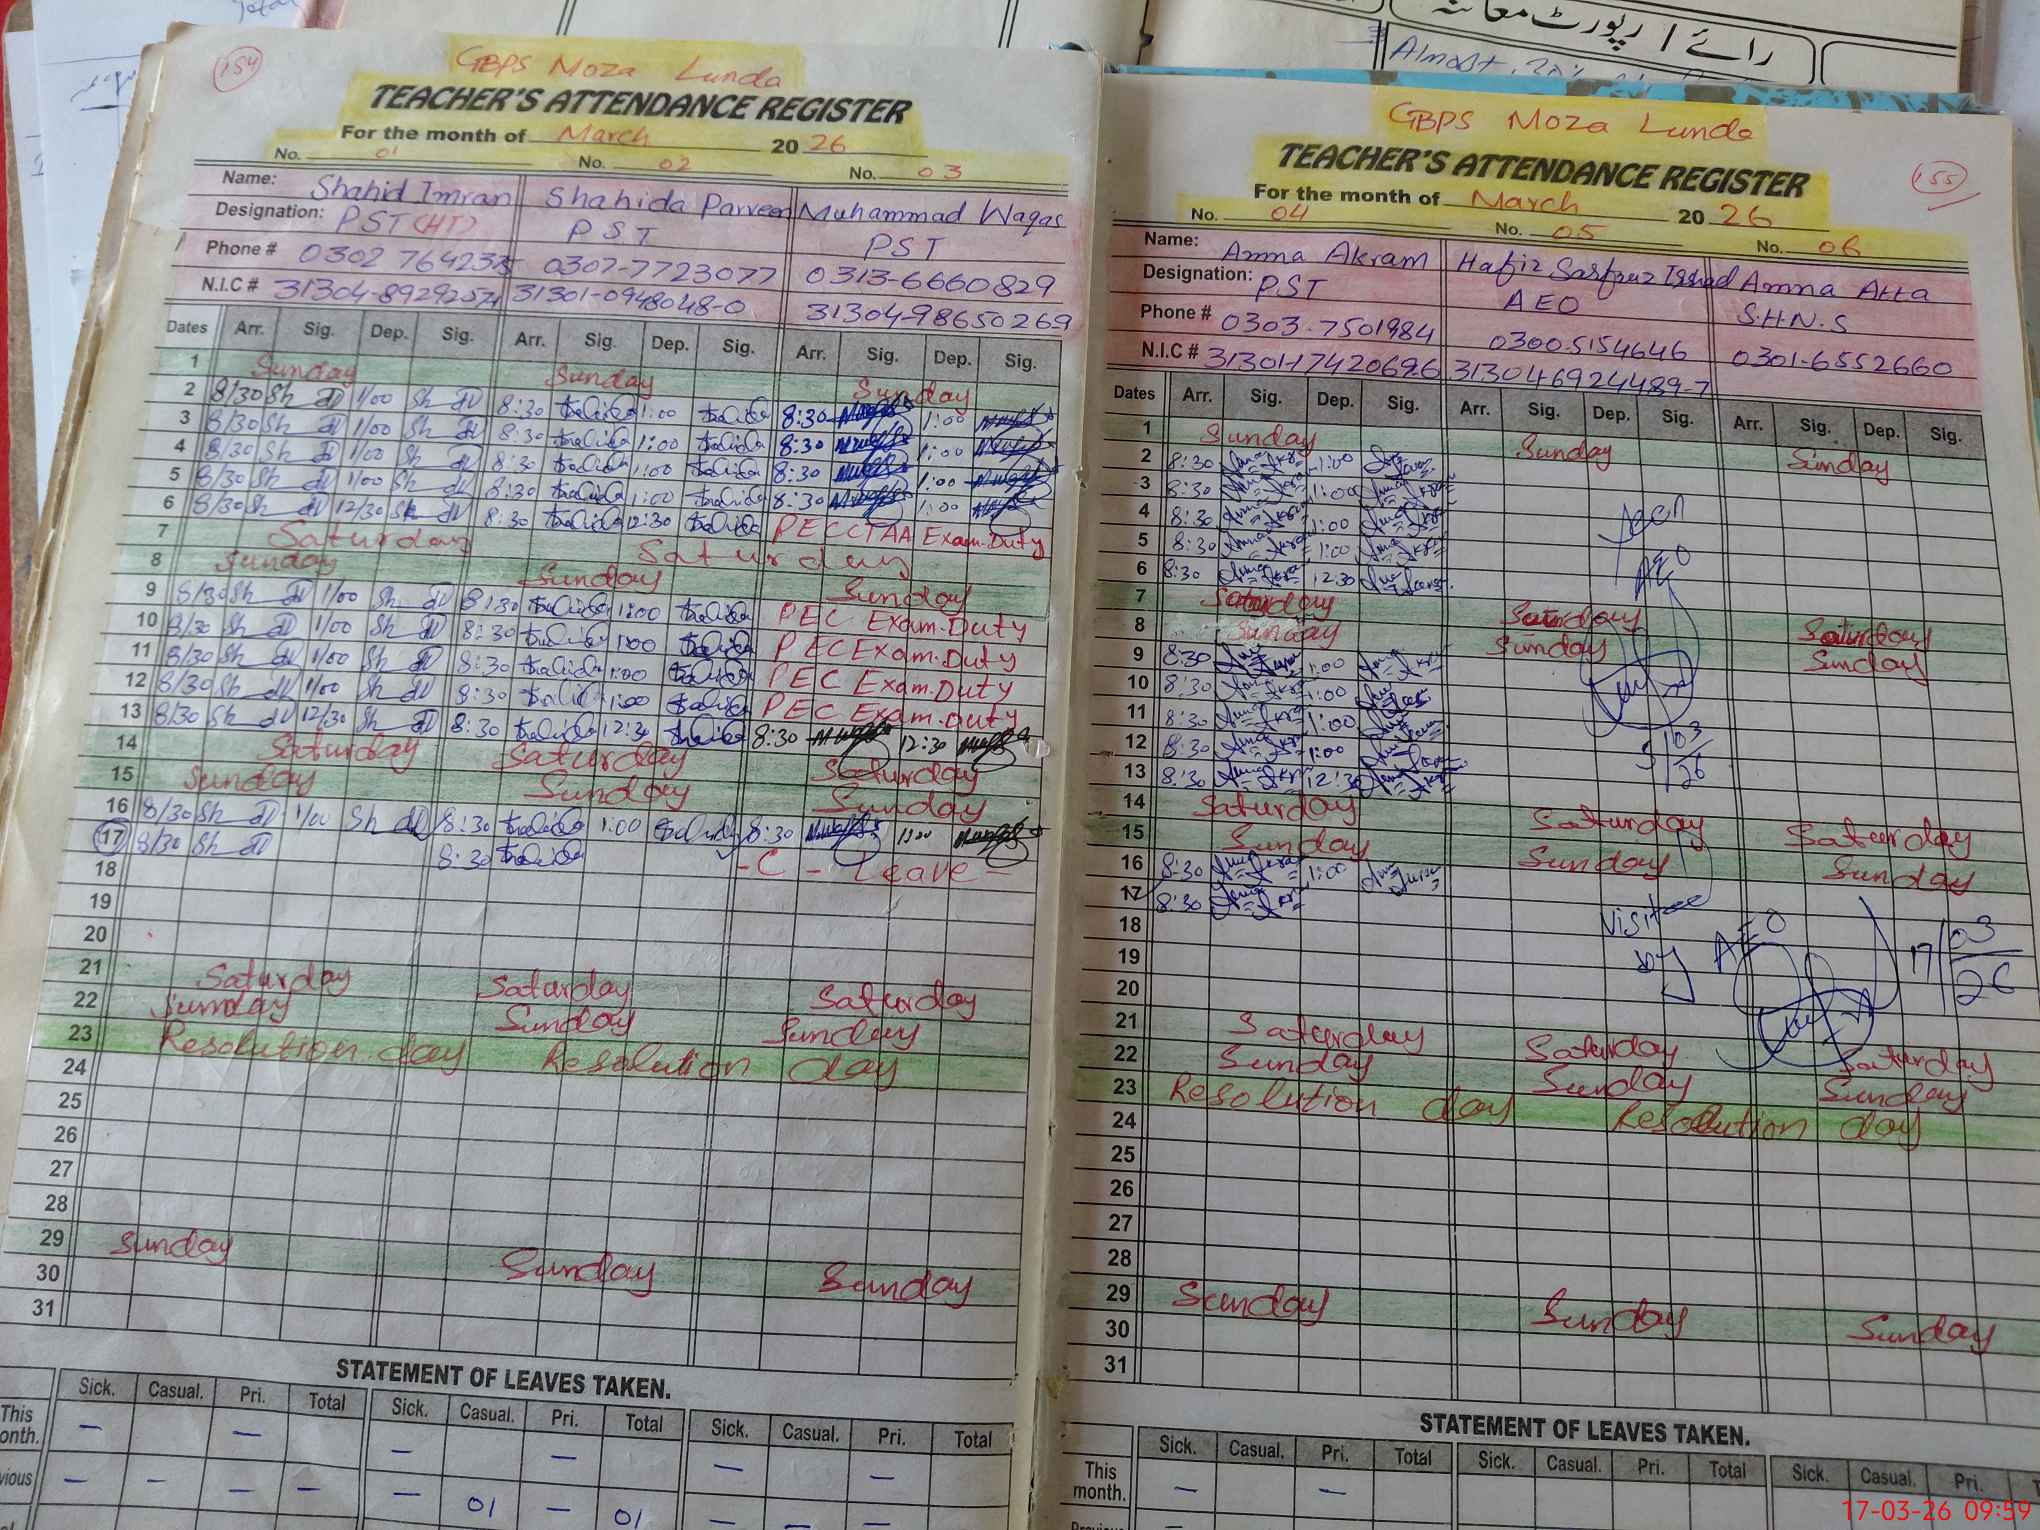 رائے / رپورٹ معائنہ
Almost
154
GBPS Moza Lunda
TEACHER'S ATTENDANCE REGISTER
For the month of March 2026
No. 01 No. 02 No. 03
Name: Shahid Imran Shahida Parveen Muhammad Waqas
Designation: PST (HT) PST PST
Phone # 0307-7723077 0313-6660829
N.I.C # 31301-0948048-0 31304-98650269
Dates Arr. Sig. Dep. Sig. Arr. Sig. Dep. Sig. Arr. Sig. Dep. Sig.
1 Sunday Sunday Sunday
2 8/30 Sh 1/00 Sh 8:30 1:00 8:30 1:00
3 8/30 Sh 1/00 Sh 8:30 1:00 8:30 1:00
4 8/30 Sh 1/00 Sh 8:30 1:00 8:30 1:00
5 8/30 Sh 1/00 Sh 8:30 1:00 8:30 1:00
6 8/30 Sh 12/30 Sh 8:30 12:30 PECCTAA Exam.Duty
7 Saturday Saturday
8 Sunday Sunday Sunday
9 8/30 Sh 1/00 Sh 8:30 1:00 PEC Exam.Duty
10 8/30 Sh 1/00 Sh 8:30 1:00 PEC Exam.Duty
11 8/30 Sh 1/00 Sh 8:30 1:00 PEC Exam.Duty
12 8/30 Sh 1/00 Sh 8:30 1:00 PEC Exam.Duty
13 8/30 Sh 12/30 Sh 8:30 12:30 8:30 12:30
14 Saturday Saturday Saturday
15 Sunday Sunday Sunday
16 8/30 Sh 1/00 Sh 8:30 1:00 8:30 1:00
17 8/30 Sh 8:30 -C - Leave -
18
19
20
21 Saturday Saturday Saturday
22 Sunday Sunday Sunday
23 Resolution day Resolution day
24
25
26
27
28
29 Sunday Sunday Sunday
30
31
STATEMENT OF LEAVES TAKEN.
Sick. Casual. Pri. Total Sick. Casual. Pri. Total Sick. Casual. Pri. Total
This
onth. – – – – – –
vious – – – – – 01 – 01 – – –
155
GBPS Moza Lunda
TEACHER'S ATTENDANCE REGISTER
For the month of March 2026
No. 04 No. 05 No. 06
Name: Amna Akram Hafiz Sarfraz Irshad Amna Atta
Designation: PST AEO S.H.N.S
Phone # 0303-7501984 03005154646 0301-6552660
N.I.C # 31301-17420696 313046924489-7
Dates Arr. Sig. Dep. Sig. Arr. Sig. Dep. Sig. Arr. Sig. Dep. Sig.
1 Sunday Sunday Sunday
2 8:30 1:00
3 8:30 1:00
4 8:30 1:00
5 8:30 1:00
6 8:30 12:30 AEO
7 Saturday Saturday Saturday
8 Sunday Sunday Sunday
9 8:30 1:00
10 8:30 1:00
11 8:30 1:00
12 8:30 1:00 5/03/26
13 8:30 12:30
14 Saturday Saturday Saturday
15 Sunday Sunday Sunday
16 8:30 1:00
17 8:30
18 Visited AEO 17/03/26
19 by
20
21 Saturday Saturday Saturday
22 Sunday Sunday Sunday
23 Resolution day Resolution day
24
25
26
27
28
29 Sunday Sunday Sunday
30
31
STATEMENT OF LEAVES TAKEN.
Sick. Casual. Pri. Total Sick. Casual. Pri. Total Sick. Casual. Pri. T
This
month. – –
Previous –
17-03-26 09:59